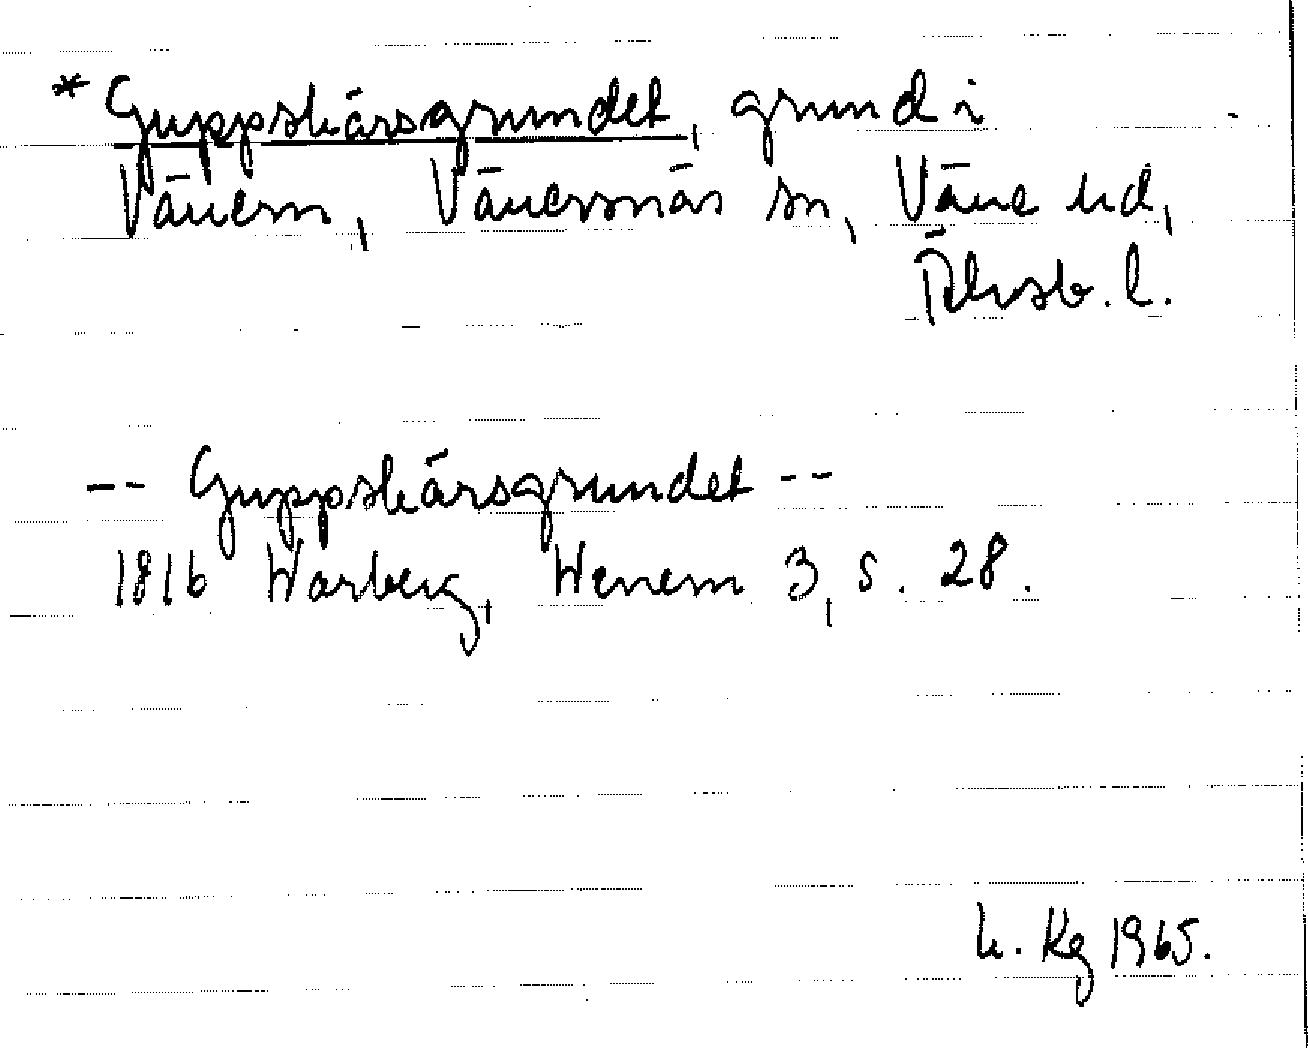 * Guppskärsgrundet, grund i
Vänern, Vänersnäs sn, Väne hd,
Älvsb. l.
-- Guppskärsgrundet --
1816 Warberg, Wenern 3, s. 28.
h. Kg 1965.